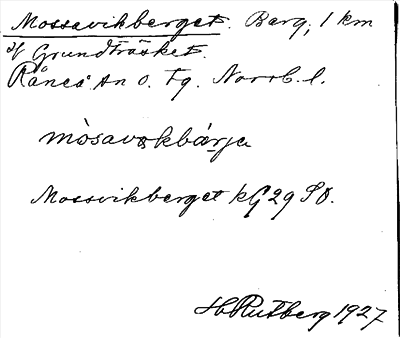 Mossavikberget. Barg, 1 km
of Grundträsket.
Råneå sn o. tg. Norrb. l.
mòsavokbárja
Mossvikberget kG 29 SO.
H Rutberg 1927